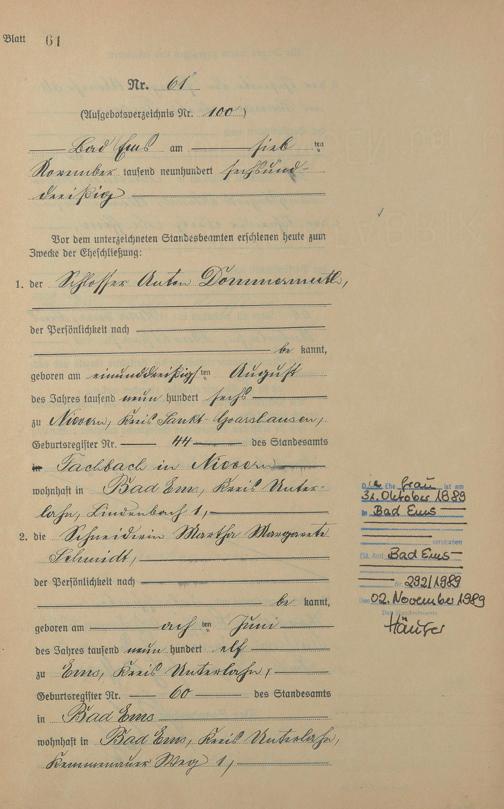 Blatt 61
Nr. 61
(Aufgebotsverzeichnis Nr. 100)
Bad Ems am sieb ten
November tausend neunhundert sechsund-
dreißig
Vor dem unterzeichneten Standesbeamten erschienen heute zum
Zwecke der Eheschließung:
1. der Schlosser Anton Dommermuth,
der Persönlichkeit nach
be kannt,
geboren am einunddreißigs ten August
des Jahres tausend neun hundert sechs
zu Nievern, Kreis Sankt Goarshausen,
Geburtsregister Nr. 44 des Standesamts
Fachbach in Nievern
wohnhaft in Bad Ems, Kreis Unter-
lahn, Lindenbach 1,
2. die Schneiderin Martha Margarete
Schmidt,
der Persönlichkeit nach
be kannt,
geboren am ach ten Juni
des Jahres tausend neun hundert elf
zu Ems, Kreis Unterlahn,
Geburtsregister Nr. 60 des Standesamts
in Bad Ems
wohnhaft in Bad Ems, Kreis Unterlahn,
Kemmenauer Weg 1,
Die Ehefrau ist am
31. Oktober 1989
in Bad Ems
verstorben
(St. Amt Bad Ems
Nr. 292/1989
Den 02. November 1989
Der Standesbeamte